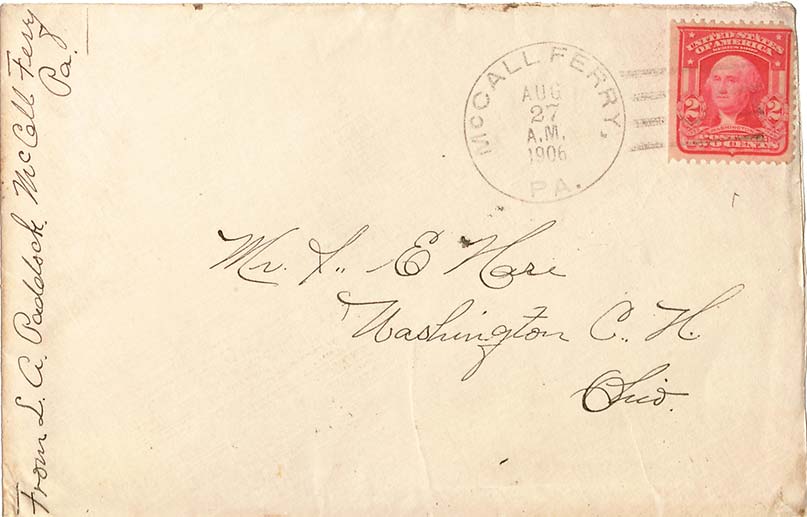 From L. A. Paddock McCall Ferry
Pa.
McCALL FERRY,
AUG
27
A.M.
1906
PA.
UNITED STATES
OF AMERICA
2 2
WASHINGTON
TWO CENTS
Mr. E Hare
Washington C. H.
Ohio.